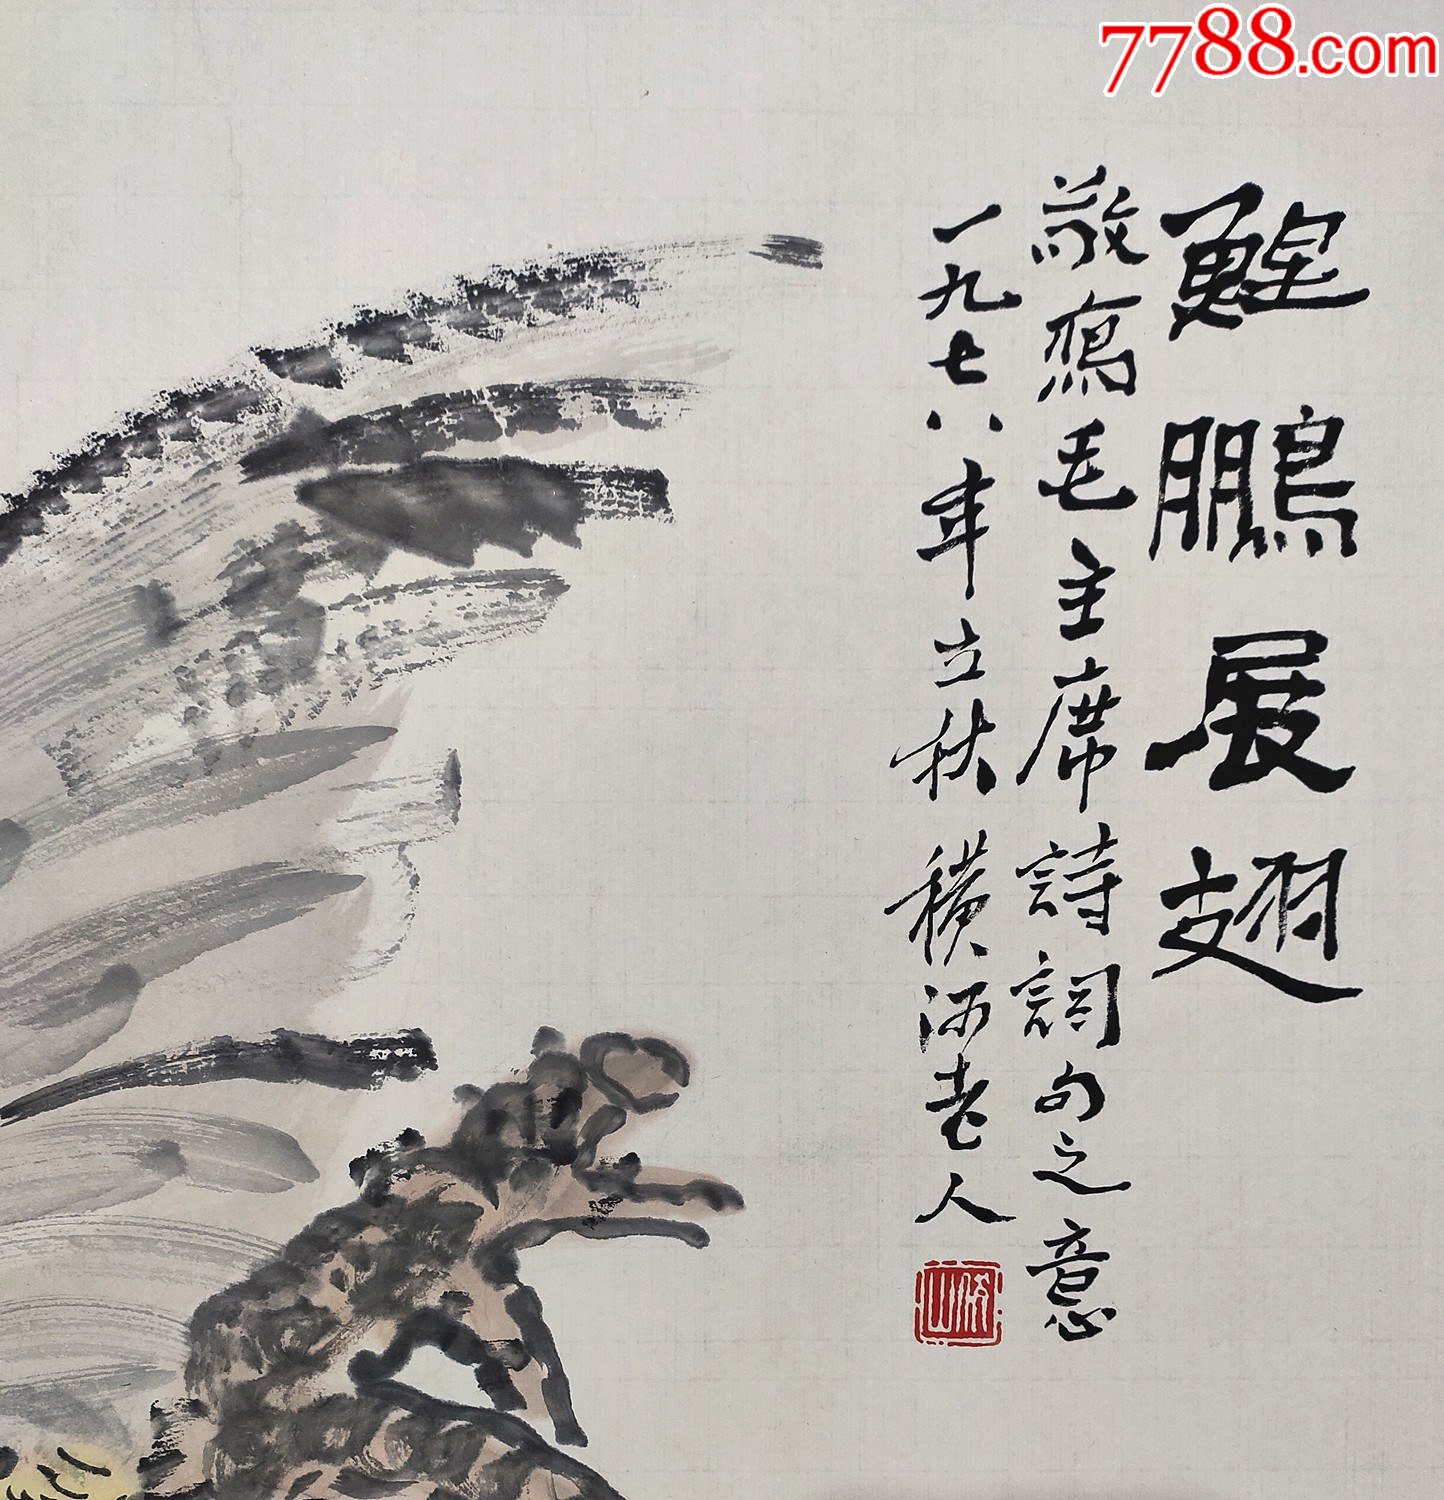 7788.com
鯤鵬展翅
敬寫毛主席詩詞句之意
一九七八年立秋 橫河老人